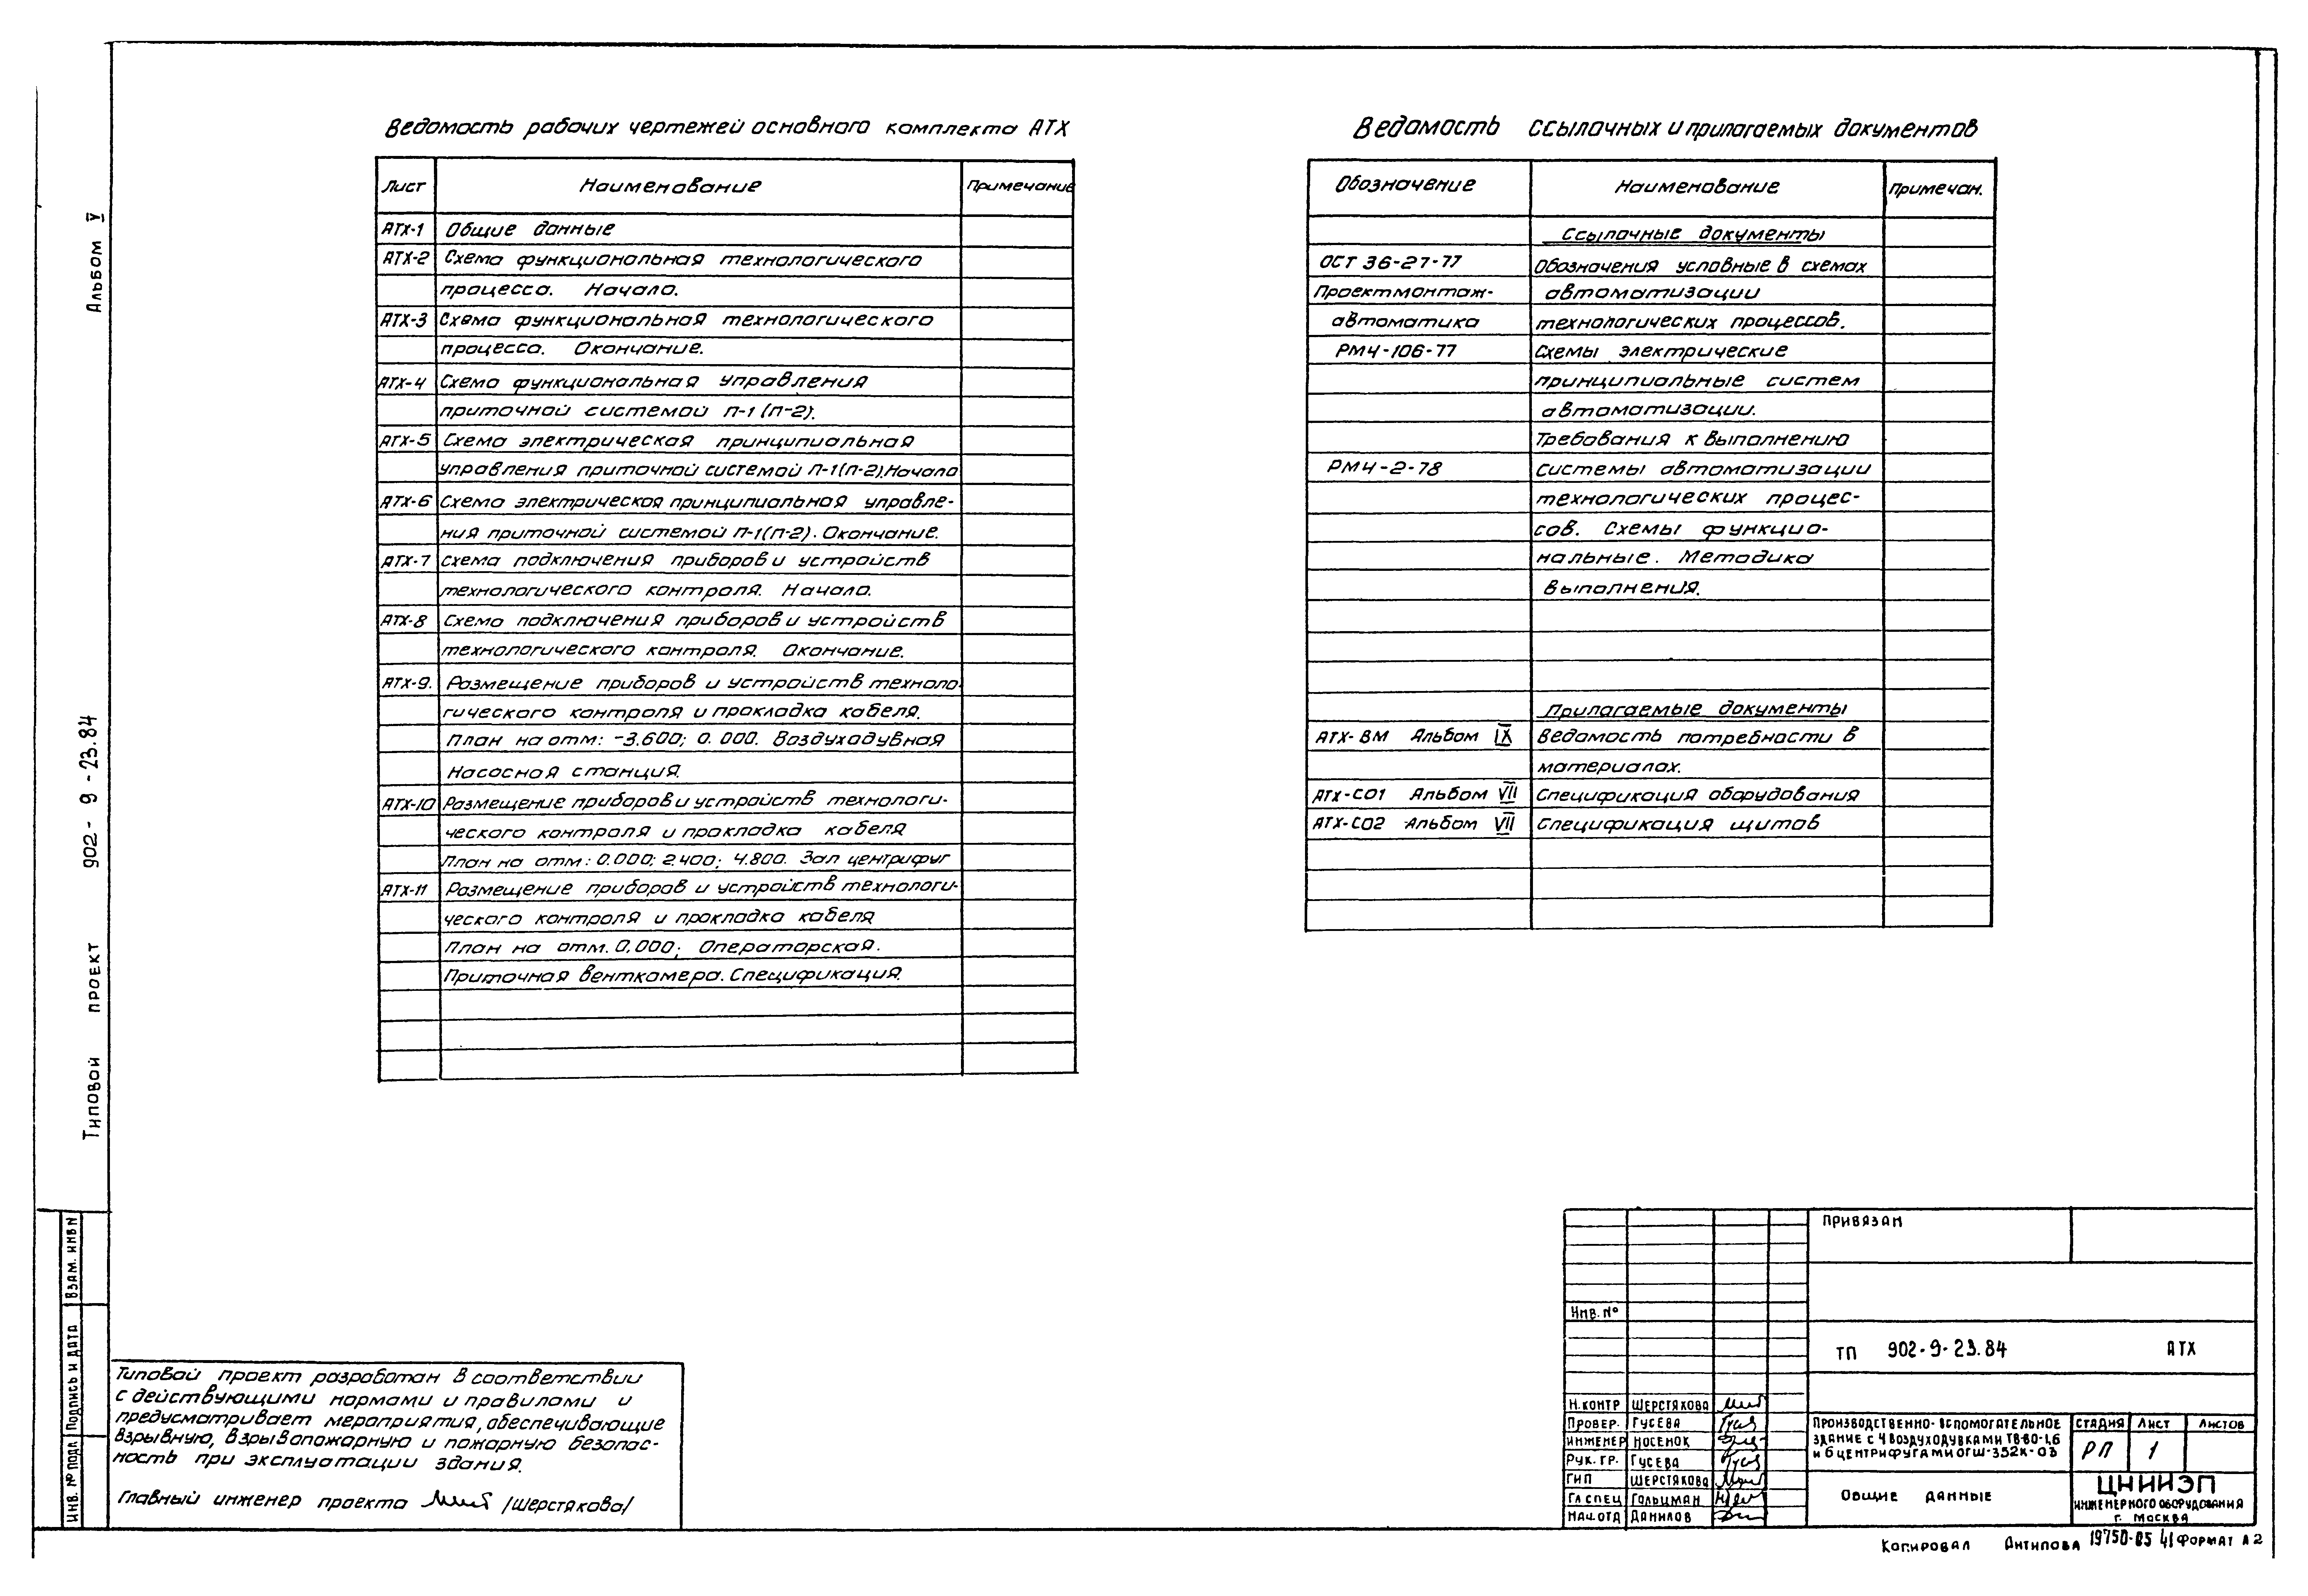 Альбом V
Типовой проект 902-9-23.84
Ведомость рабочих чертежей основного комплекта АТХ
Лист Наименование Примечание
АТХ-1 Общие данные
АТХ-2 Схема функциональная технологического
процесса. Начало.
АТХ-3 Схема функциональная технологического
процесса. Окончание.
АТХ-4 Схема функциональная управления
приточной системой П-1 (П-2).
АТХ-5 Схема электрическая принципиальная
управления приточной системой П-1(П-2).Начало
АТХ-6 Схема электрическая принципиальная управле-
ния приточной системой П-1(П-2). Окончание.
АТХ-7 Схема подключения приборов и устройств
технологического контроля. Начало.
АТХ-8 Схема подключения приборов и устройств
технологического контроля. Окончание.
АТХ-9. Размещение приборов и устройств техноло-
гического контроля и прокладка кабеля.
План на отм: -3.600; 0.000. Воздуходувная
Насосная станция.
АТХ-10 Размещение приборов и устройств технологи-
ческого контроля и прокладка кабеля
План на отм: 0.000; 2.400; 4.800. Зал центрифуг
АТХ-11 Размещение приборов и устройств технологи-
ческого контроля и прокладка кабеля
План на отм. 0.000; Операторская.
Приточная венткамера. Спецификация.
Ведомость ссылочных и прилагаемых документов
Обозначение Наименование Примечан.
Ссылочные документы
ОСТ 36-27-77 Обозначения условные в схемах
Проектмонтаж- автоматизации
автоматика технологических процессов.
РМ4-106-77 Схемы электрические
принципиальные систем
автоматизации.
Требования к выполнению
РМ4-2-78 Системы автоматизации
технологических процес-
сов. Схемы функцио-
нальные. Методика
выполнения.
Прилагаемые документы
АТХ-ВМ Альбом IX Ведомость потребности в
материалах.
АТХ-СО1 Альбом VII Спецификация оборудования
АТХ-СО2 Альбом VII Спецификация щитов
Типовой проект разработан в соответствии
с действующими нормами и правилами и
предусматривает мероприятия, обеспечивающие
взрывную, взрывопожарную и пожарную безопас-
ность при эксплуатации здания.
Главный инженер проекта /Шерстякова/
Взам. инв N
Подпись и дата
Инв. № подл
Привязан
Инв. №
ТП 902-9-23.84 АТХ
Н.контр Шерстякова
Провер. Гусева
Инженер Носенок
Рук. гр. Гусева
ГИП Шерстякова
Гл спец Гольцман
Нач. отд Данилов
Производственно-вспомогательное
здание с 4 воздуходувками ТВ-80-1,6
и 6 центрифугами ОГШ-352К-03
Стадия Лист Листов
РП 1
Общие данные
ЦНИИЭП
инженерного оборудования
г. Москва
Копировал Антипова 19750-05 41 Формат А2